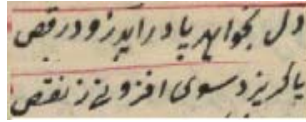 دل بخواهد پا درآید زو در رقص
یا گریزد سوی افزونی ز نقص